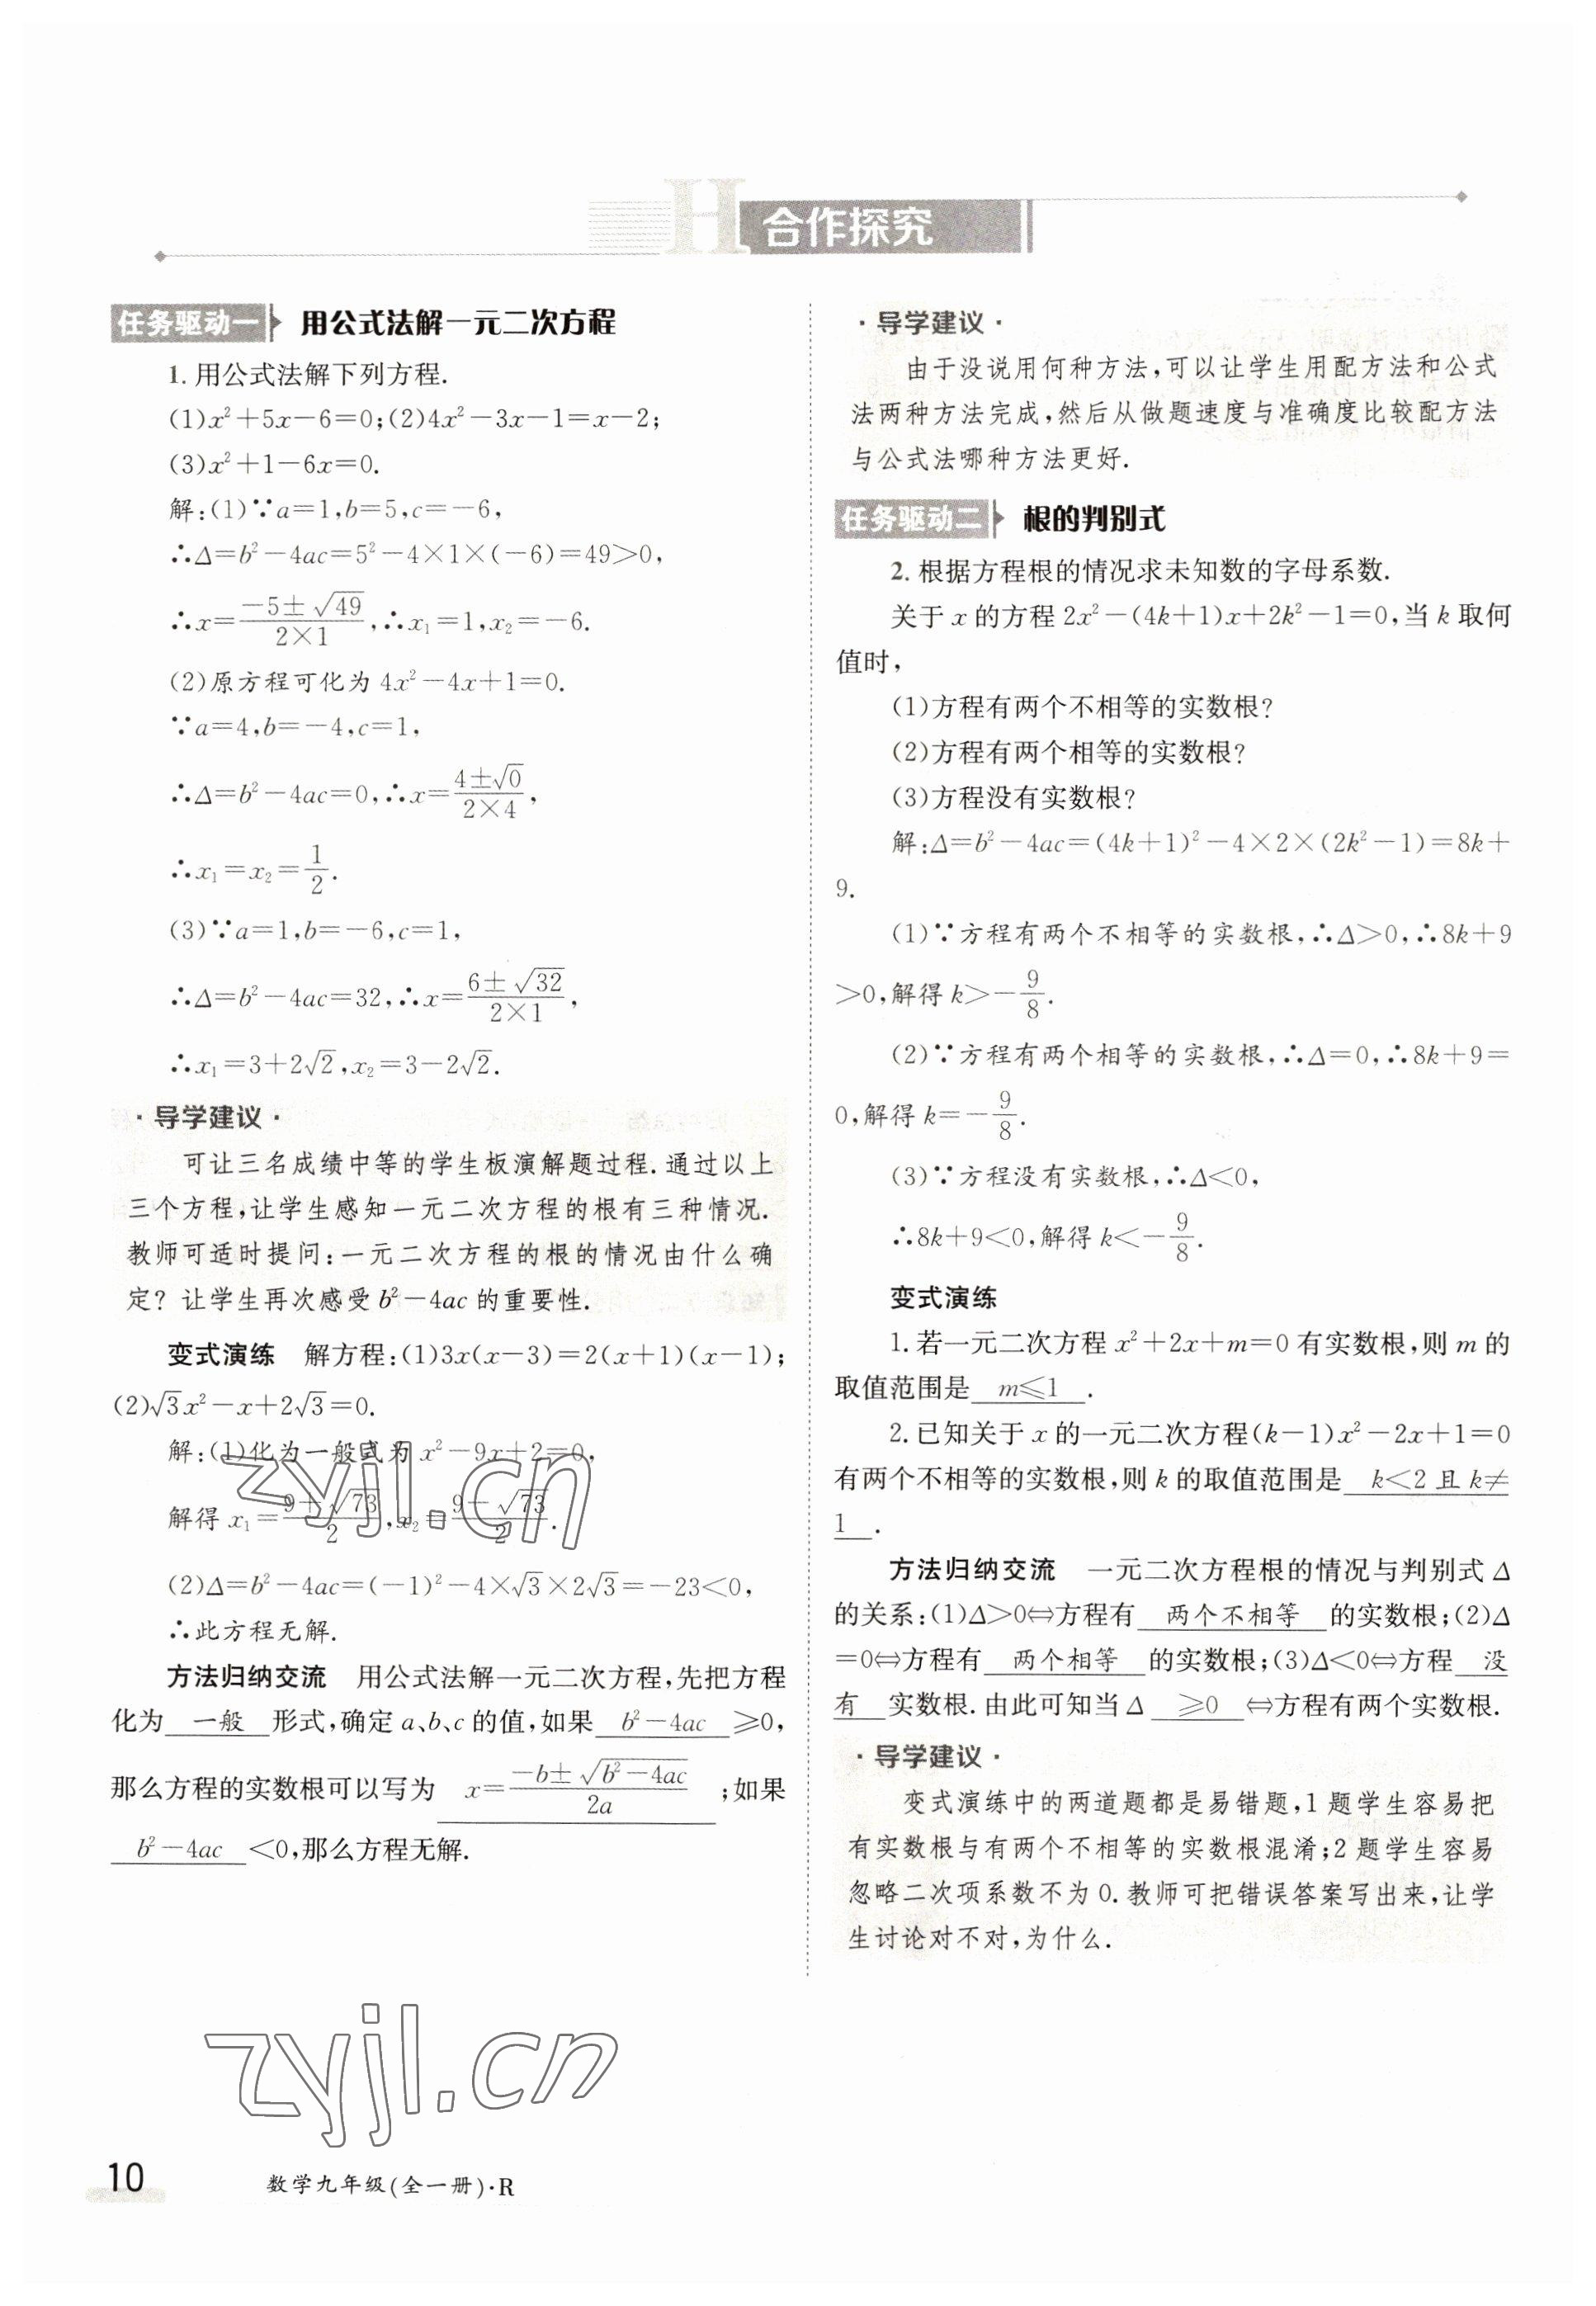 H 合作探究
任务驱动一 用公式法解一元二次方程
1. 用公式法解下列方程.
(1)x²+5x-6=0;(2)4x²-3x-1=x-2;
(3)x²+1-6x=0.
解:(1)∵a=1,b=5,c=-6,
∴Δ=b²-4ac=5²-4×1×(-6)=49>0,
∴x=(-5±√49)/(2×1),∴x₁=1,x₂=-6.
(2)原方程可化为 4x²-4x+1=0.
∵a=4,b=-4,c=1,
∴Δ=b²-4ac=0,∴x=(4±√0)/(2×4),
∴x₁=x₂=1/2.
(3)∵a=1,b=-6,c=1,
∴Δ=b²-4ac=32,∴x=(6±√32)/(2×1),
∴x₁=3+2√2,x₂=3-2√2.
·导学建议·
可让三名成绩中等的学生板演解题过程.通过以上
三个方程,让学生感知一元二次方程的根有三种情况.
教师可适时提问:一元二次方程的根的情况由什么确
定? 让学生再次感受 b²-4ac 的重要性.
变式演练 解方程:(1)3x(x-3)=2(x+1)(x-1);
(2)√3x²-x+2√3=0.
解:(1)化为一般式为 x²-9x+2=0,
解得 x₁=(9+√73)/2,x₂=(9-√73)/2.
(2)Δ=b²-4ac=(-1)²-4×√3×2√3=-23<0,
∴此方程无解.
方法归纳交流 用公式法解一元二次方程,先把方程
化为 一般 形式,确定 a、b、c 的值,如果 b²-4ac ≥0,
那么方程的实数根可以写为 x=(-b±√(b²-4ac))/(2a) ;如果
b²-4ac <0,那么方程无解.
·导学建议·
由于没说用何种方法,可以让学生用配方法和公式
法两种方法完成,然后从做题速度与准确度比较配方法
与公式法哪种方法更好.
任务驱动二 根的判别式
2. 根据方程根的情况求未知数的字母系数.
关于 x 的方程 2x²-(4k+1)x+2k²-1=0,当 k 取何
值时,
(1)方程有两个不相等的实数根?
(2)方程有两个相等的实数根?
(3)方程没有实数根?
解:Δ=b²-4ac=(4k+1)²-4×2×(2k²-1)=8k+
9.
(1)∵方程有两个不相等的实数根,∴Δ>0,∴8k+9
>0,解得 k>-9/8.
(2)∵方程有两个相等的实数根,∴Δ=0,∴8k+9=
0,解得 k=-9/8.
(3)∵方程没有实数根,∴Δ<0,
∴8k+9<0,解得 k<-9/8.
变式演练
1. 若一元二次方程 x²+2x+m=0 有实数根,则 m 的
取值范围是 m≤1 .
2. 已知关于 x 的一元二次方程(k-1)x²-2x+1=0
有两个不相等的实数根,则 k 的取值范围是 k<2 且 k≠
1 .
方法归纳交流 一元二次方程根的情况与判别式 Δ
的关系:(1)Δ>0⇔方程有 两个不相等 的实数根;(2)Δ
=0⇔方程有 两个相等 的实数根;(3)Δ<0⇔方程 没
有 实数根.由此可知当 Δ ≥0 ⇔方程有两个实数根.
·导学建议·
变式演练中的两道题都是易错题,1 题学生容易把
有实数根与有两个不相等的实数根混淆;2 题学生容易
忽略二次项系数不为 0.教师可把错误答案写出来,让学
生讨论对不对,为什么.
zyjl.cn
zyjl.cn
10
数学九年级(全一册)·R